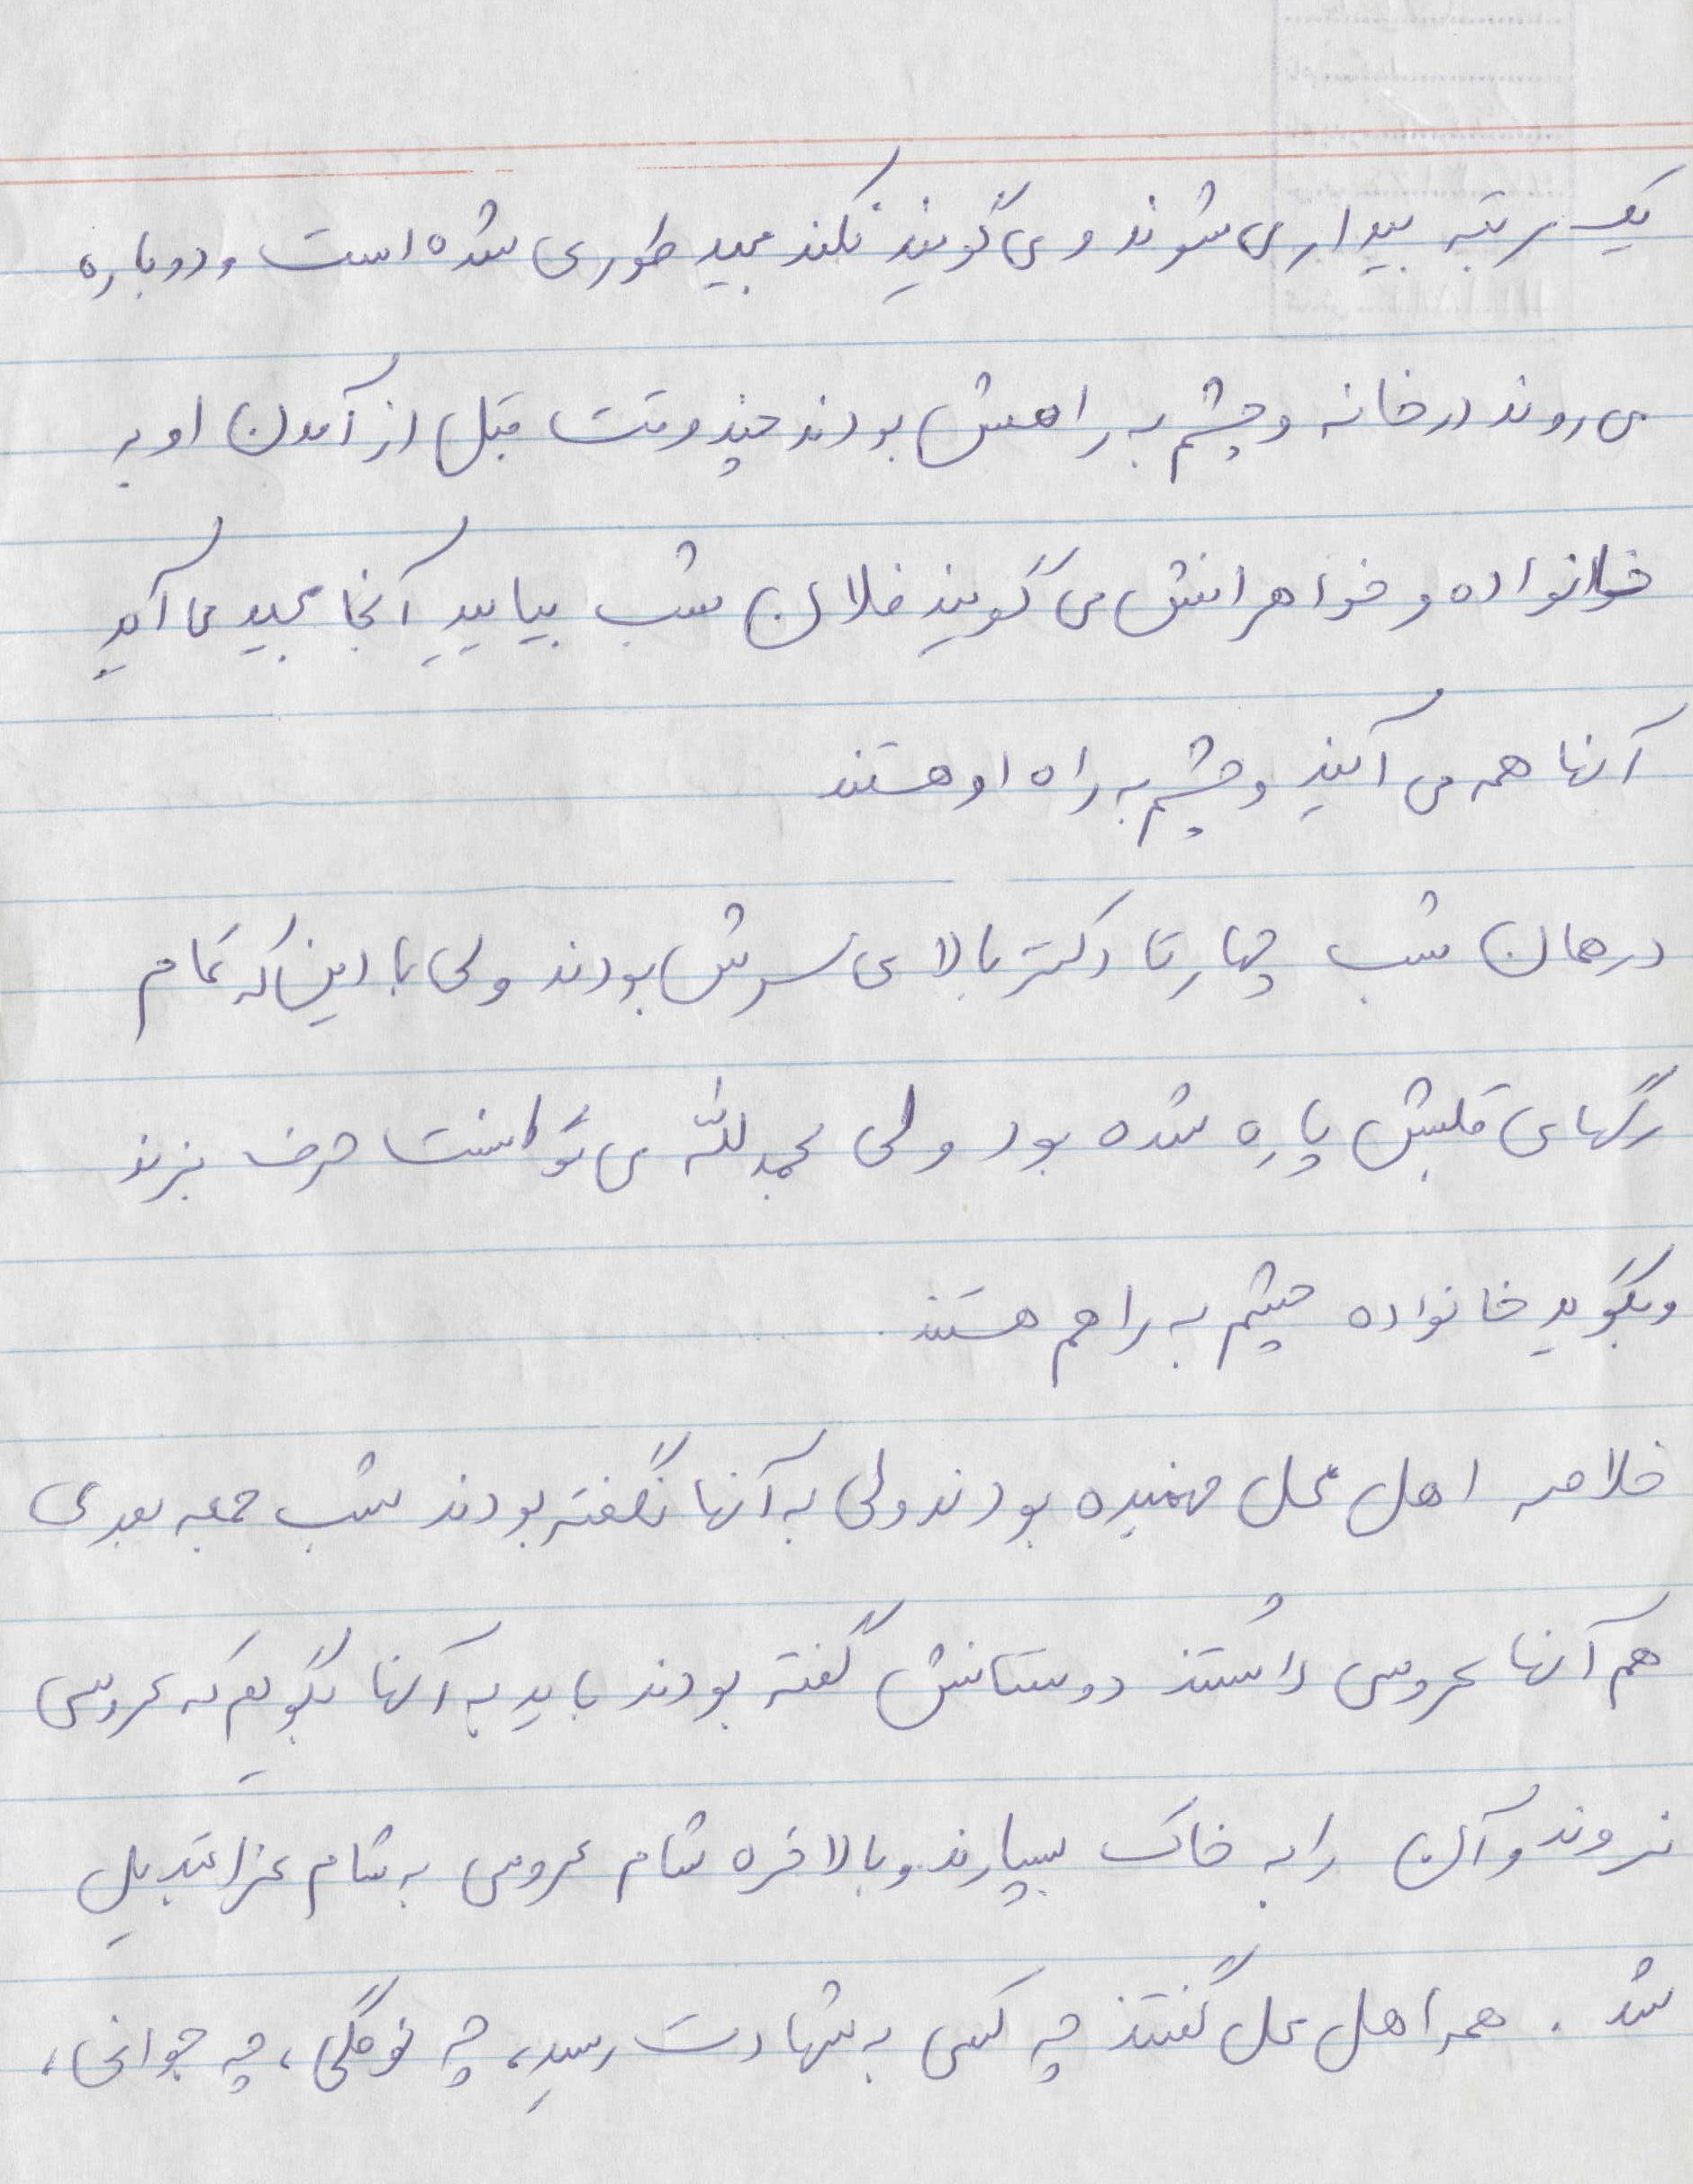 یک مرتبه بیدار می شوند و می گویند نکند مجید طوری شده است و دوباره
می روند در خانه و چشم به راهش بودند چند وقت قبل از آمدن او به
خانواده و خواهرانش می گویند فلان شب بیایید آنجا مجید می آید
آنها همه می آیند و چشم به راه او هستند
در همان شب چهار تا دکتر بالای سرش بودند ولی با این که تمام
رگهای قلبش پاره شده بود ولی بحمدلله می توانست حرف بزند
و بگوید خانواده چشم به راهم هستند.
خلاصه اهل محل فهمیده بودند ولی به آنها نگفته بودند شب جمعه بعدی
هم آنها عروسی داشتند دوستانش گفته بودند باید به آنها بگویم که عروسی
نروند و آن را به خاک بسپارند و بالاخره شام عروسی به شام عزا تبدیل
شد. همه اهل محل گفتند چه کسی به شهادت رسید، چه نوگلی، چه جوانی،